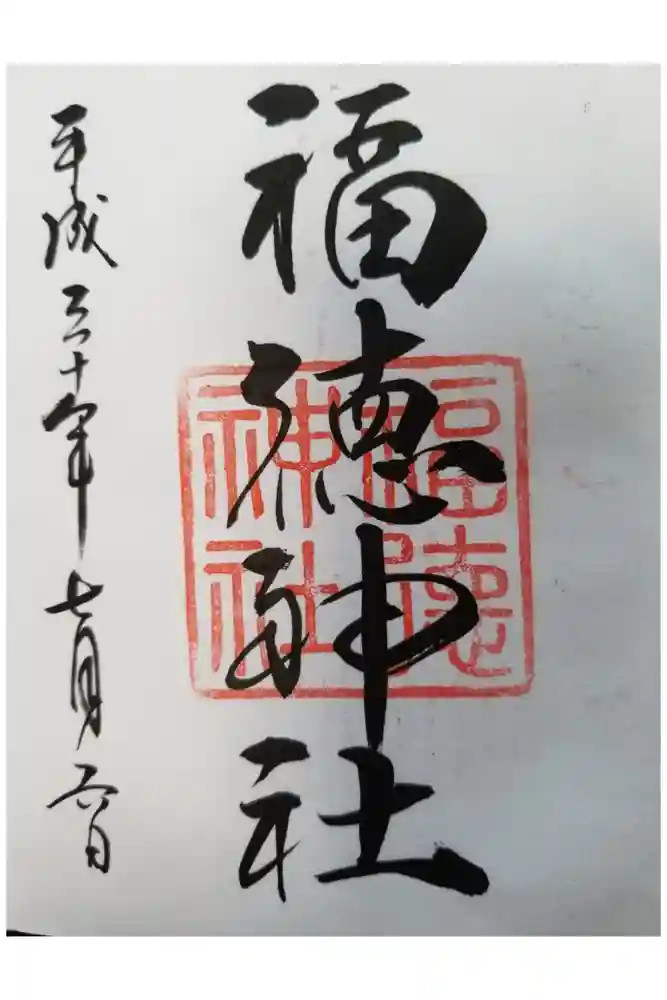 福徳神社
福徳神社
平成三十年七月六日